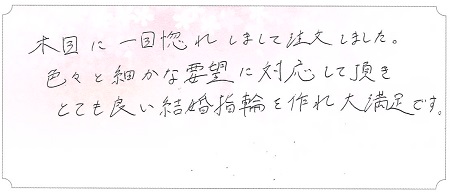 木目に一目惚れしまして注文しました。
色々と細かな要望に対応して頂き
とても良い結婚指輪を作れ大満足です。